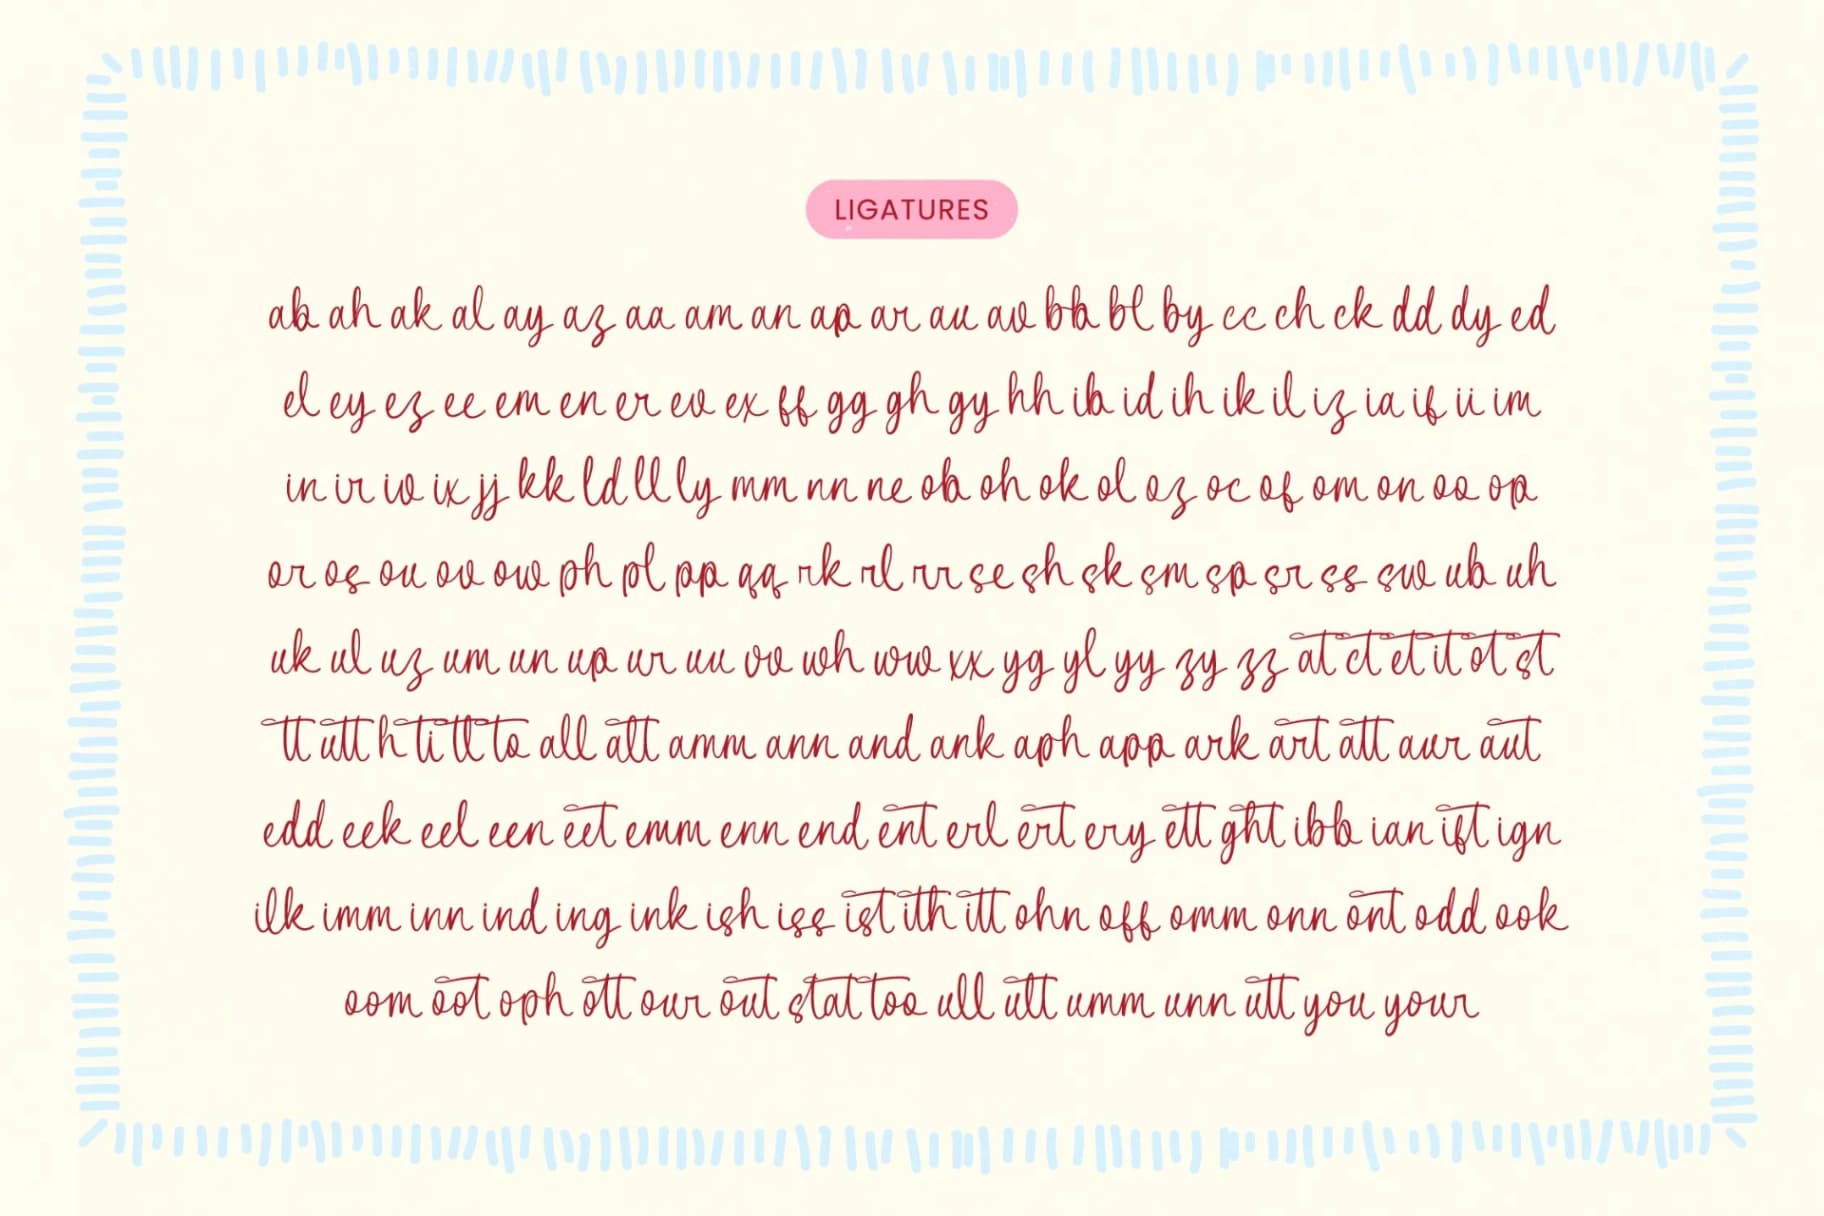 LIGATURES
ab ah ak al ay az aa am an ap ar au av bb bl by cc ch ck dd dy ed
el ey ez ee em en er ev ex ff gg gh gy hh ib id ih ik il iz ia if ii im
in ir iv ix jj kk ld ll ly mm nn ne ob oh ok ol oz oc of om on oo op
or os ou ov ow ph pl pp qq rk rl rr se sh sk sm sp sr ss sw ub uh
uk ul uz um un up ur uu vv wh ww xx yg yl yy zy zz at ct et it ot st
tt utt h ti tl to all alt amm ann and ank aph app ark art att aur aut
edd eek eel een eet emm enn end ent erl ert ery ett ght ibb ian ift ign
ilk imm inn ind ing ink ish iss ist ith itt ohn off omm onn ont odd ook
oom oot oph ott our out stat too ull ult umm unn utt you your